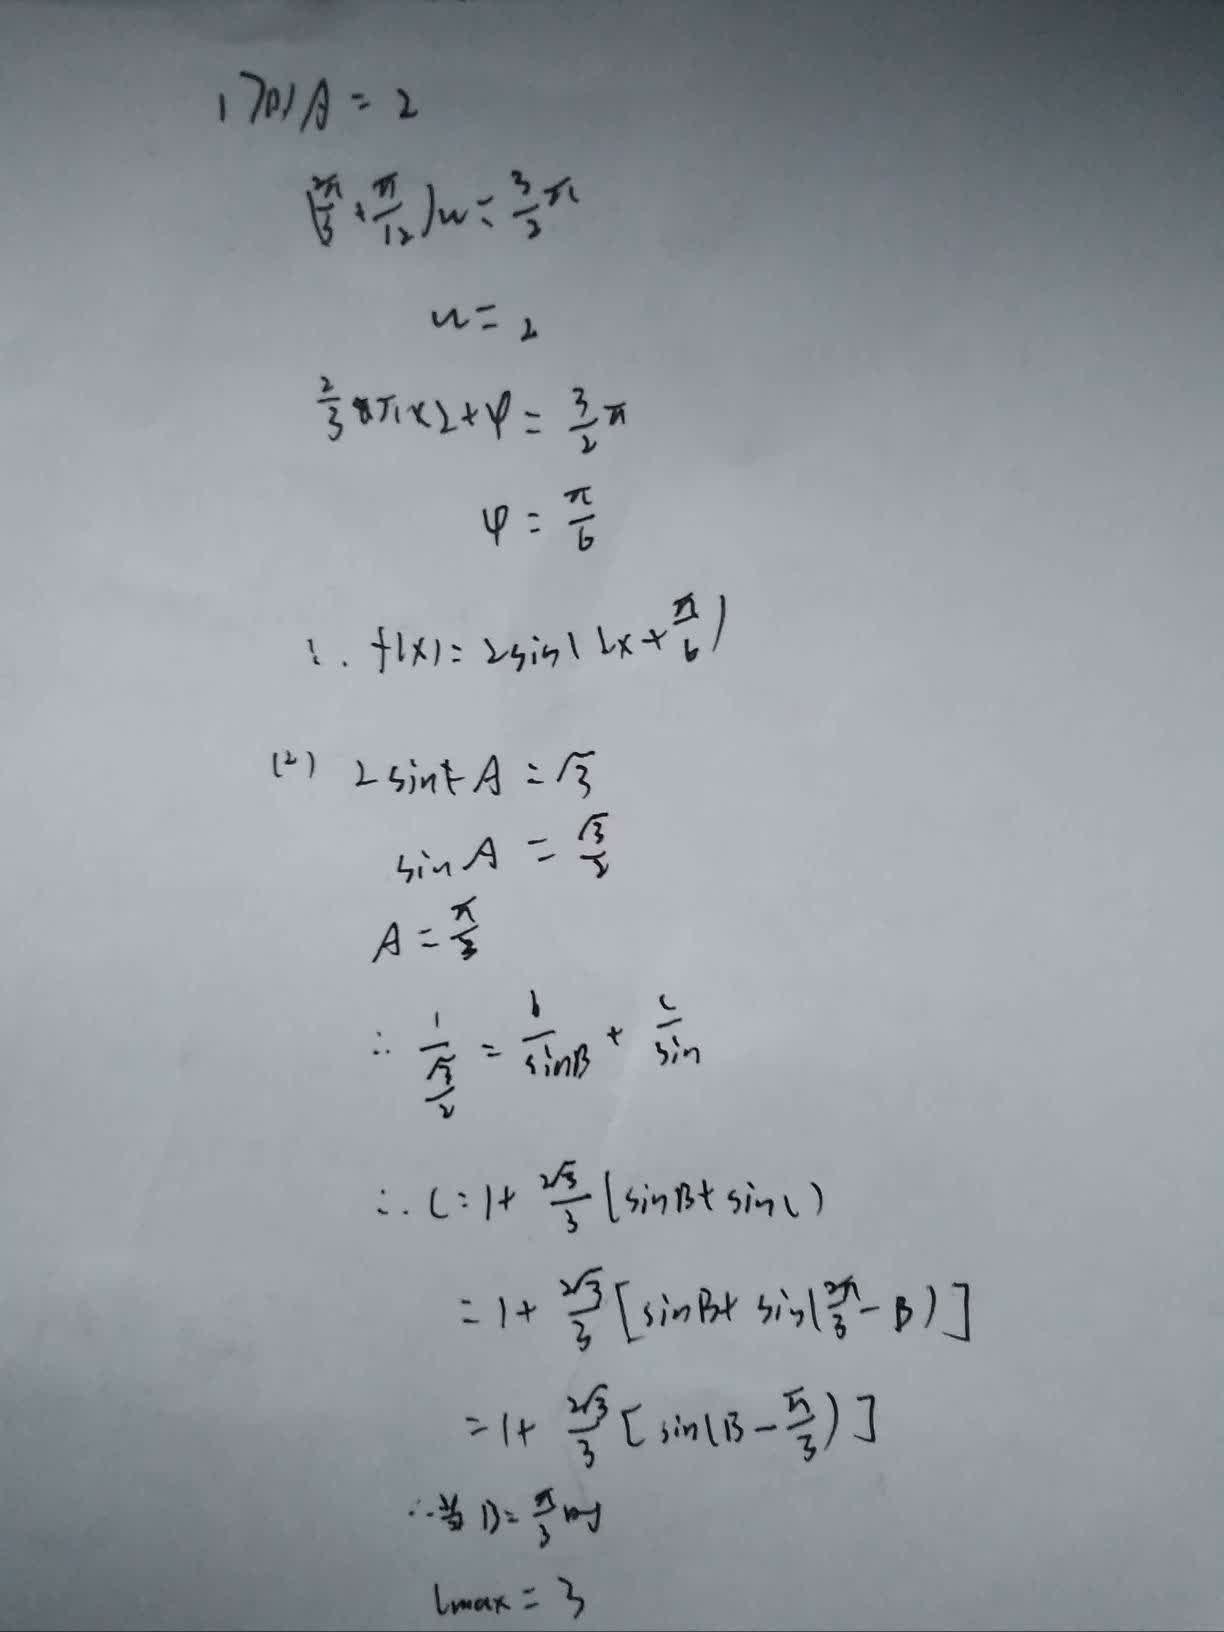 1)则A=2
(2π/3+π/12)w=3/2π
w=2
2/3π×2+φ=3/2π
φ=π/6
∴f(x)=2sin(2x+π/6)
(2) 2sinA=√3
sinA=√3/2
A=π/3
∴1/(√3/2)=b/sinB+c/sin
∴C=1+2√3/3(sinB+sinC)
=1+2√3/3[sinB+sin(2π/3-B)]
=1+2√3/3[sin(B-π/3)]
∴当B=π/3时
Lmax=3